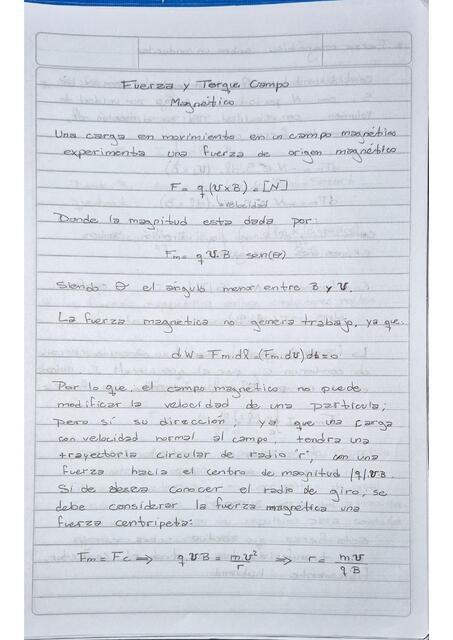 Fuerza y Torque Campo
Magnético
Una carga en movimiento en un campo magnético
experimenta una fuerza de origen magnético
F = q (v x B) = [N]
velocidad
Donde la magnitud esta dada por:
Fm = q v B sen(θ)
Siendo θ el ángulo menor entre B y v.
La fuerza magnetica no genera trabajo, ya que.
dW = Fm . dl = (Fm . dv) dt = 0
Por lo que, el campo magnético no puede
modificar la velocidad de una partícula,
pero sí su dirección, ya que una carga
con velocidad normal al campo, tendra una
trayectoria circular de radio "r", con una
fuerza hacia el centro de magnitud |q|vB.
Si de desea conocer el radio de giro, se
debe considerar la fuerza magnetica una
fuerza centripeta:
Fm = Fc ⟹ q v B = m v² / r ⟹ r = m v / q B